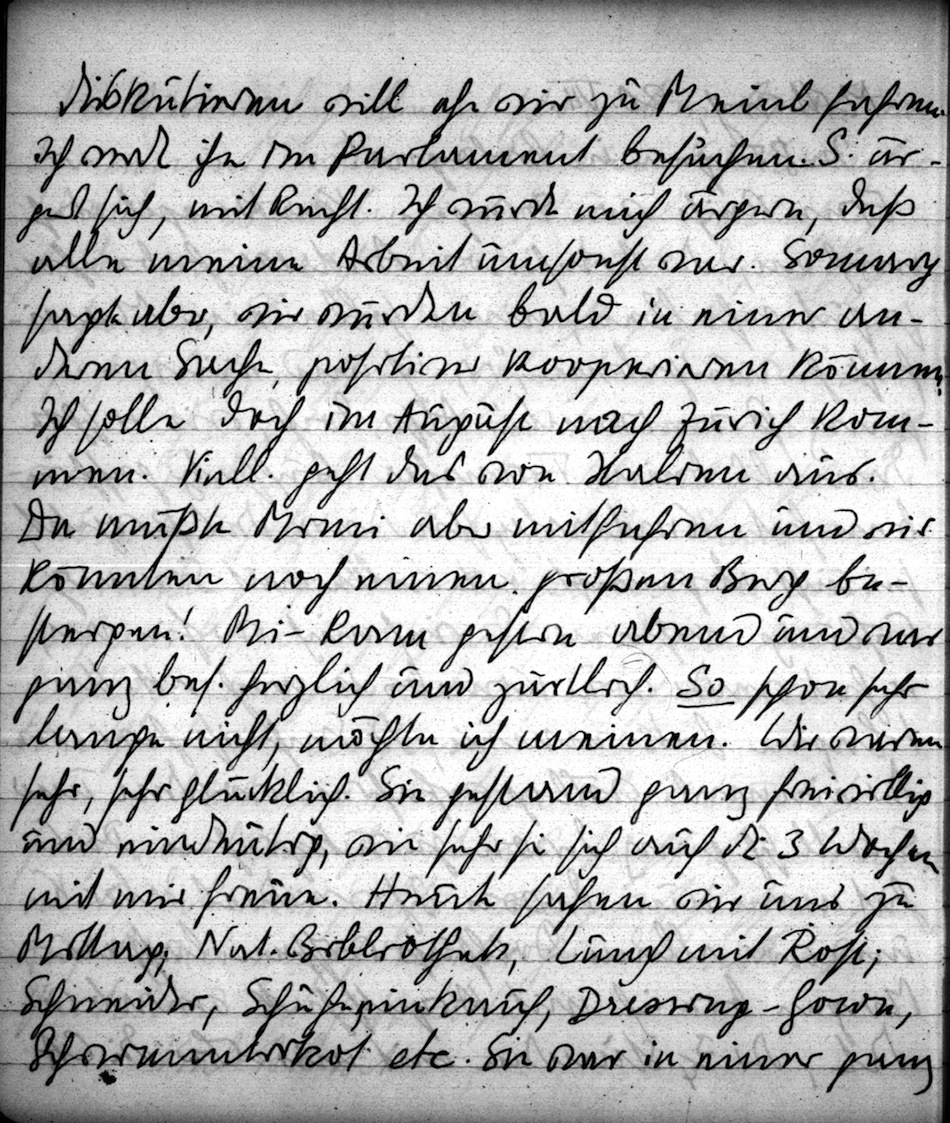 diskutieren will ehe wir zu Meinl fahren.
Ich werde ihn im Parlament besuchen. S. är-
gert sich, mit Recht. Ich würde mich ärgern, daß
alle meine Arbeit umsonst war. Somary
sagte aber, wir würden bald in einer an-
deren Sache, positiver kooperieren können.
Ich solle doch im August nach Zürich kom-
men. Viell. geht das von Italien aus.
Da müßte Mimi aber mitfahren und wir
könnten noch einen großen Berg be-
steigen! Mi- kam gestern abend und war
ganz bes. herzlich und zärtlich. So schon sehr
lange nicht, möchte ich meinen. Wir waren
sehr, sehr glücklich. Sie gestand ganz freiwillig
und eindeutig, wie sehr sie sich auf die 3 Wochen
mit mir freue. Heute sahen wir uns zu
Mittag; Nat. Bibliothek, Lunch mit Rost;
Schneider, Schuheeinkauf, Dressing-Gown,
Schwimmtrikot etc. Sie war in einer ganz